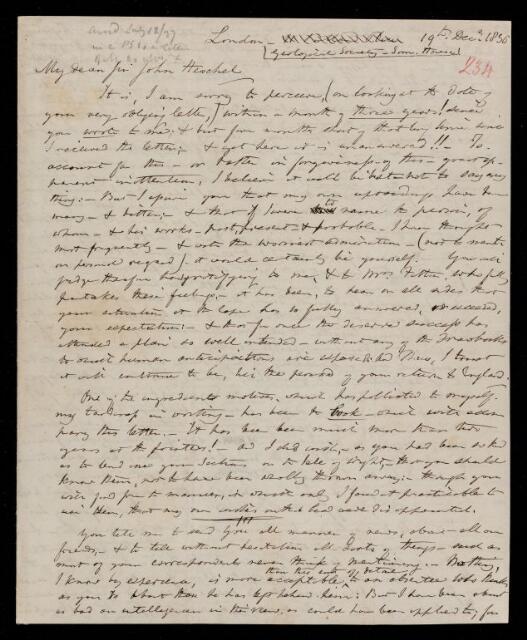 London - 19th Decr. 1836
(Geological Society - Som. House)
234
My dear Sir John Herschel
It is, I am sorry to perceive, (on looking at the date of
your very obliging letter,) within a month of three years! since
you wrote to me; & but few months short of that long time since
I received the letter; & yet here it is unanswered!! To
account for this - or better in forgiveness of this - great ap-
parent inattention, I believe it will be better not to say any
thing: - But I assure you that my own upbraidings have been
many - & bitter; & that if I were to name the person, of
whom - & his works - past, present & probable - I have thought
most frequently - & with the warmest admiration - (not to mention
personal regard) it would certainly be yourself. You will
judge therefore how gratifying to me, & to Mrs. Fitton, who fully
partakes these feelings, - it has been, to hear on all sides that
your situation at the Cape has so fully answered, or exceeded,
your expectations; & thus for once the deserved success has
attended a plan so well intended - without any of the drawbacks
to which human anticipations are exposed. Thus, I trust
it will continue to be, till the period of your return to England.
One of the ingredients which has palliated to myself
my tardiness in writing - has been the book - which will accom-
pany this letter. - It has been much more than two
years at the printers! - and I did wish, - as you had been so kind
as to lend me your Sections on the Isle of Wight, - that you should
know them, not to have been wholly thrown away; - though you
will find from the manner, in which only I found it practicable to
use them, that my own wishes on that head were disappointed.
You tell me to send you all manner of news, about all our
friends, - & to tell without hesitation all sorts of things - such as
most of your correspondents never think of mentioning. - Nothing,
I know by experience, is more acceptable, than this sort of detail, to an absentee who thinks
as you do about those he has left behind him: But I have been about
as bad an intelligencer in this view, as could have been applied to, for